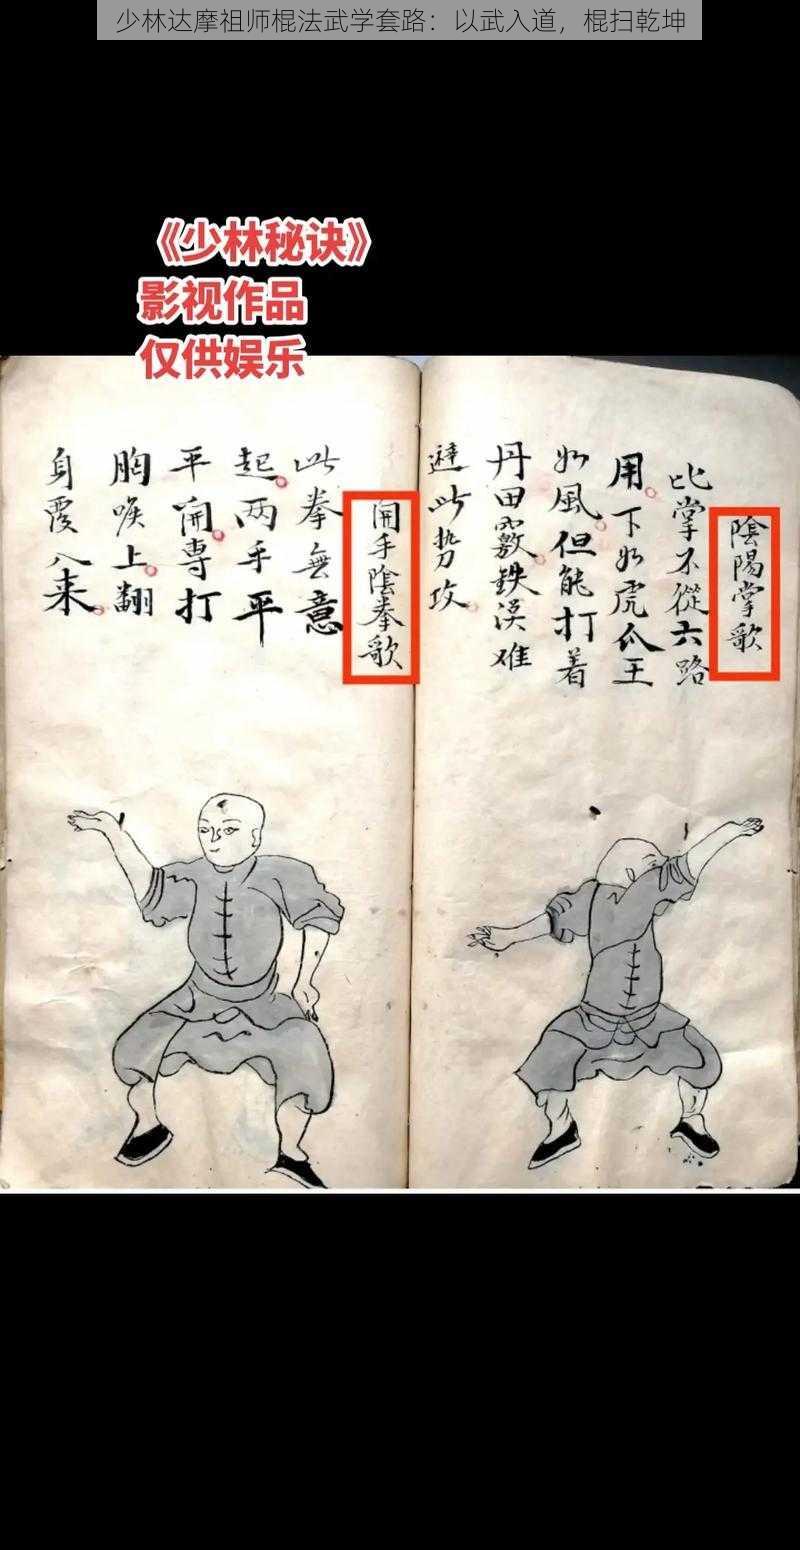 少林达摩祖师棍法武学套路：以武入道，棍扫乾坤
《少林秘诀》
影视作品
仅供娱乐
陰陽掌歌
比掌不從六路
用下如虎爪王
如風但能打着
丹田竅鉄漢难
避此势攻
開手陰拳歌
此拳無意
起两手平
平開專打
胸喉上翻
身覆入来